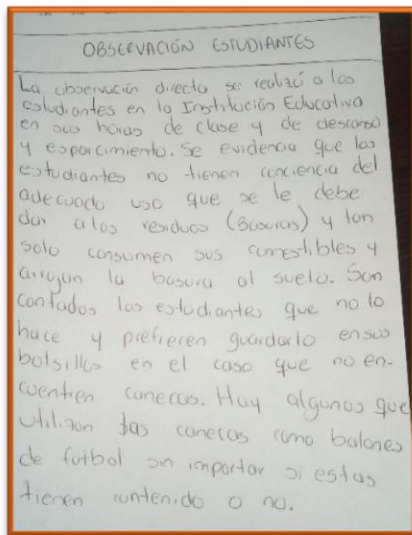 OBSERVACIÓN ESTUDIANTES
La observación directa se realizó a los
estudiantes en la Institución Educativa
en sus horas de clase y de descanso
y esparcimiento. Se evidencia que los
estudiantes no tienen conciencia del
adecuado uso que se le debe
dar a los residuos (Basuras) y tan
solo consumen sus comestibles y
arrojan la basura al suelo. Son
contados los estudiantes que no lo
hace y prefieren guardarlo en sus
bolsillos en el caso que no en-
cuentren canecas. Hay algunos que
utilizan las canecas como balones
de futbol sin importar si estas
tienen contenido o no.